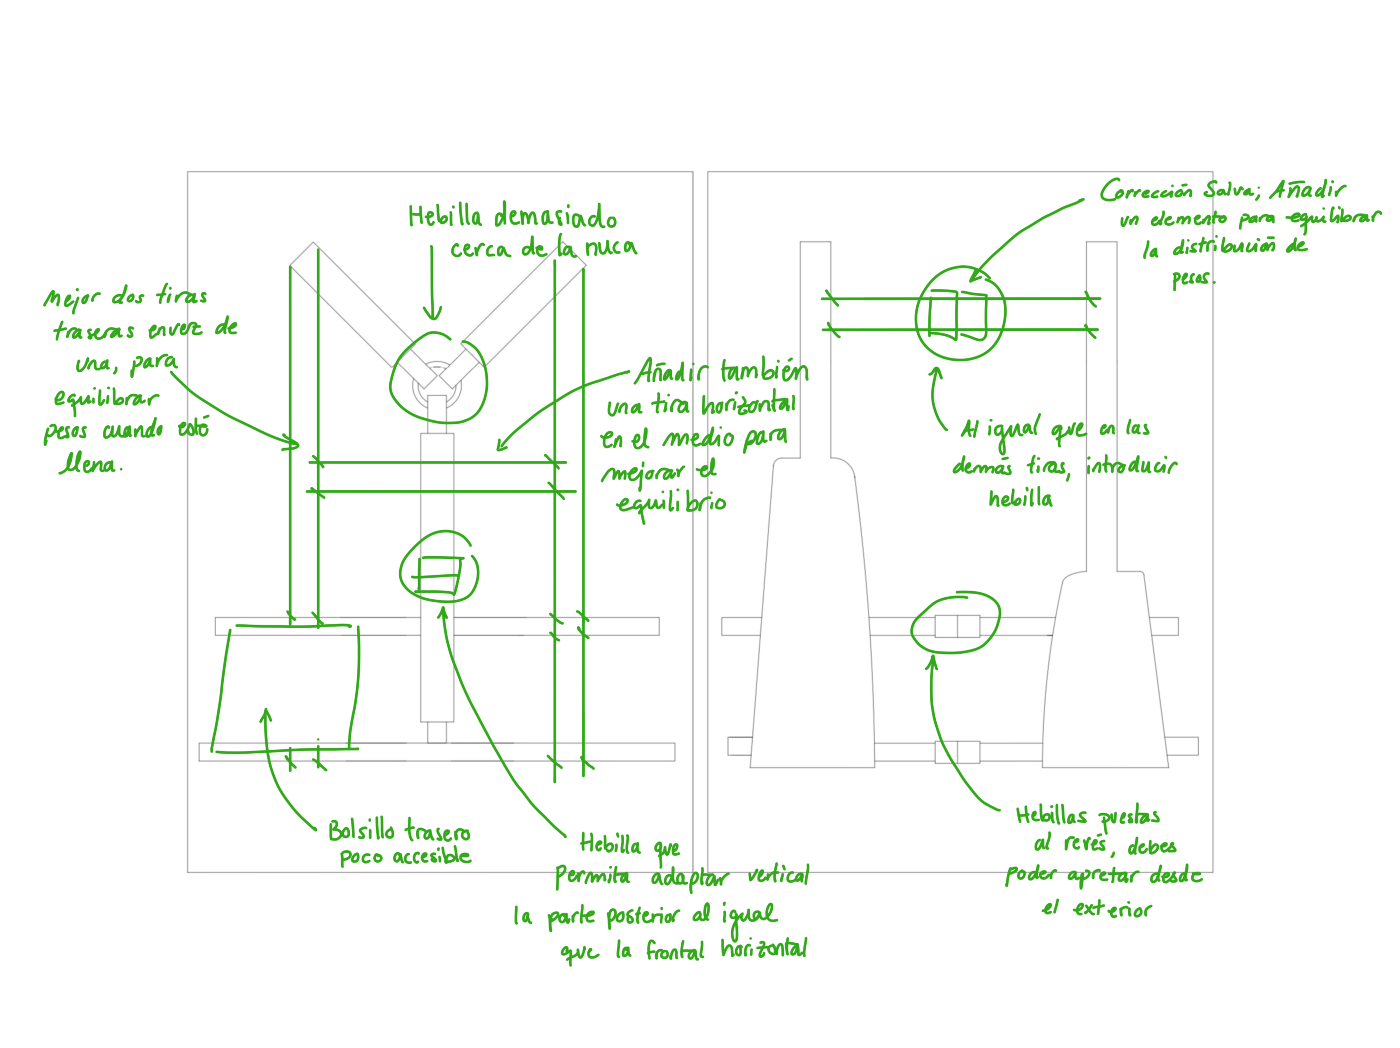 Hebilla demasiado
cerca de la nuca
Mejor dos tiras
traseras envez de
una, para
equilibrar
pesos cuando esté
llena.
Añadir también
una tira horizontal
en el medio para
mejorar el
equilibrio
Bolsillo trasero
poco accesible
Hebilla que
Permita adaptar vertical
la parte posterior al igual
que la frontal horizontal
Corrección Salva; Añadir
un elemento para equilibrar
la distribución de
pesos.
Al igual que en las
demás tiras, introducir
hebilla
Hebillas puestas
al revés, debes
poder apretar desde
el exterior